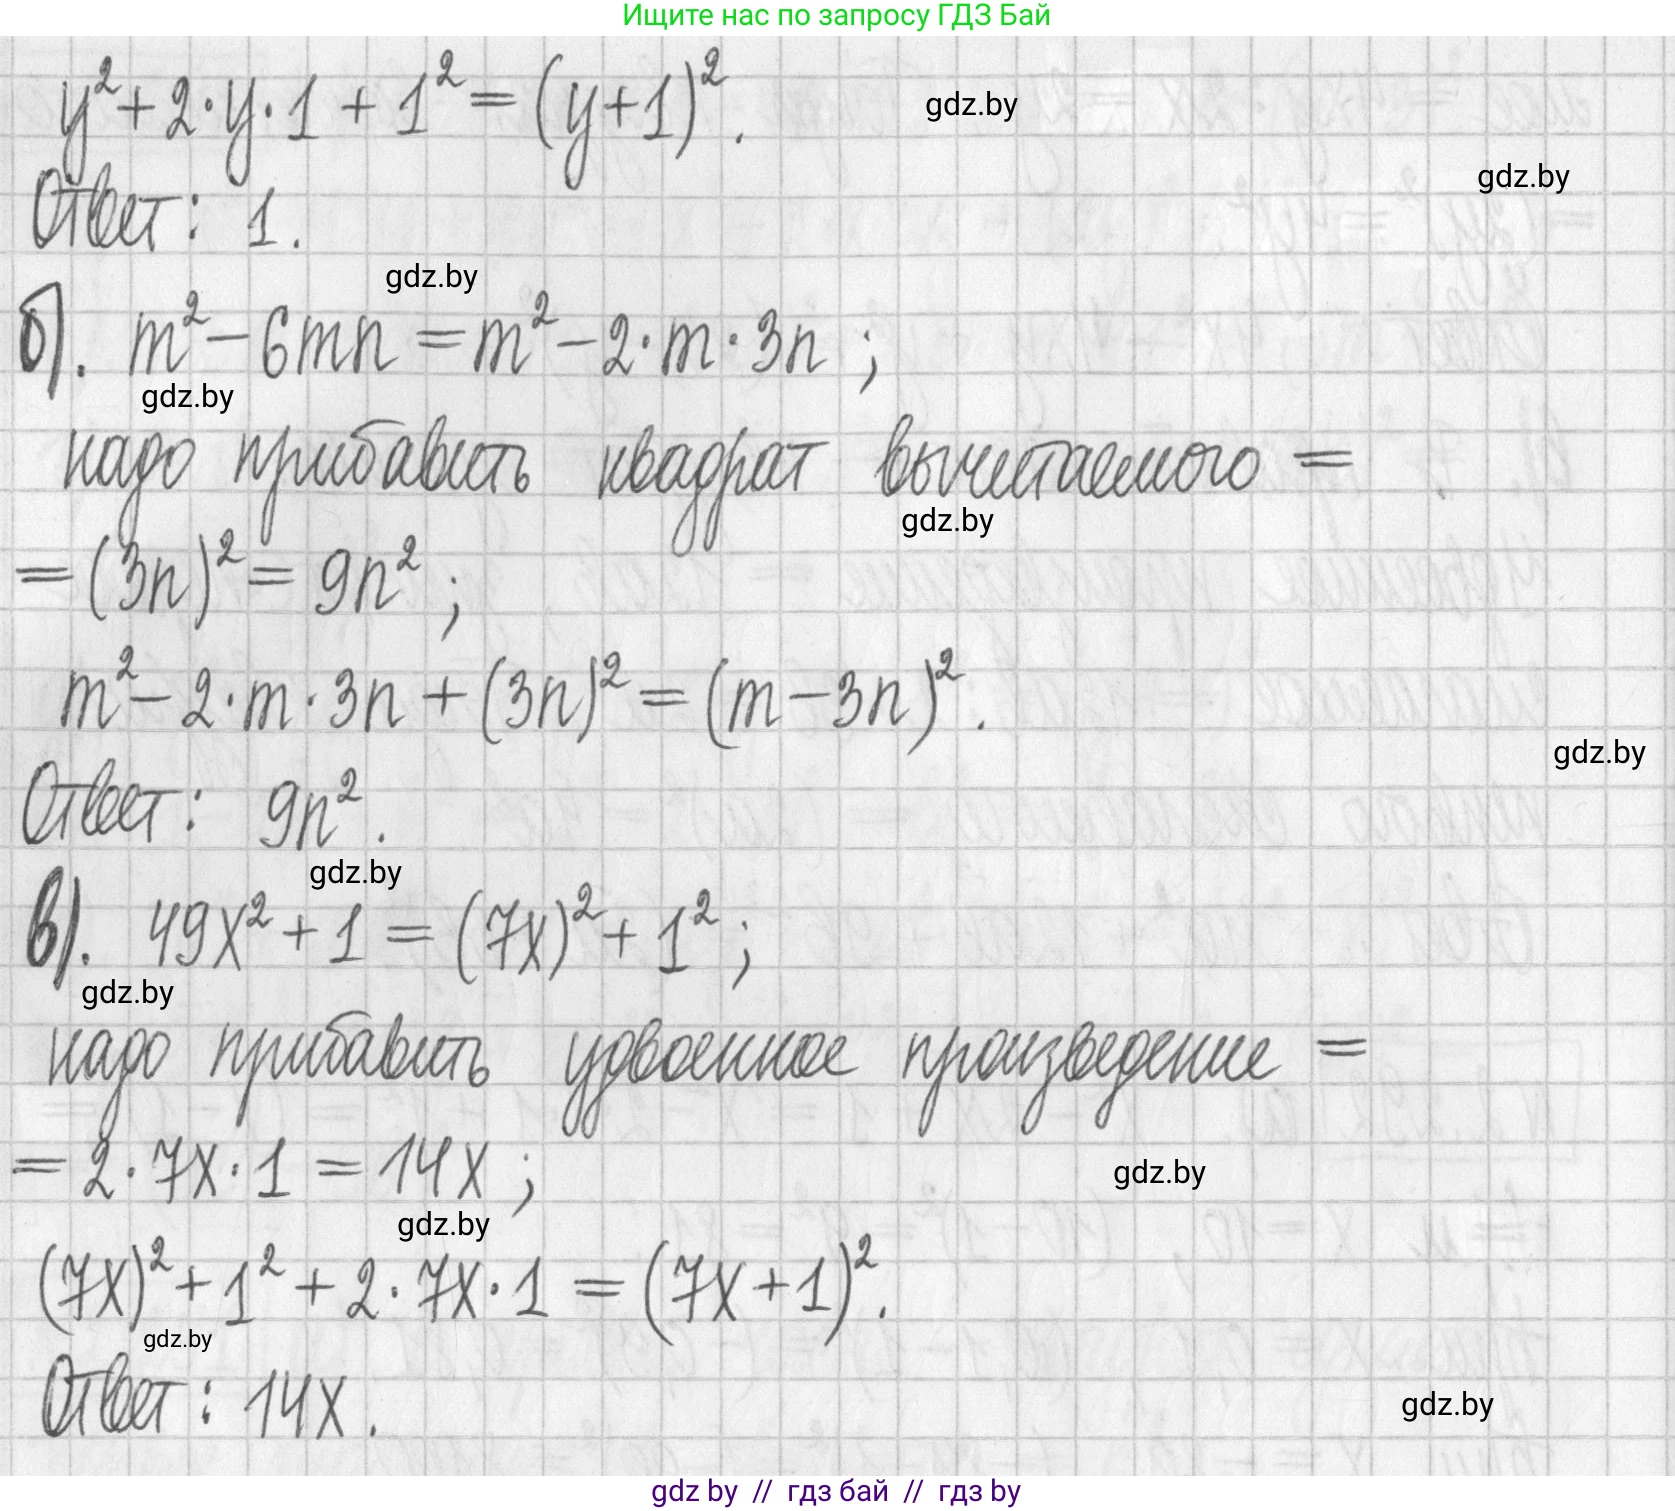 Ищите нас по запросу ГДЗ Бай
y² + 2·y·1 + 1² = (y+1)².
gdz.by
gdz.by
Ответ: 1.
gdz.by
б). m² − 6mn = m² − 2·m·3n ;
gdz.by
надо прибавить квадрат вычитаемого =
gdz.by
= (3n)² = 9n² ;
m² − 2·m·3n + (3n)² = (m − 3n)².
gdz.by
Ответ: 9n².
gdz.by
в). 49x² + 1 = (7x)² + 1² ;
gdz.by
надо прибавить удвоенное произведение =
= 2·7x·1 = 14x ;
gdz.by
gdz.by
(7x)² + 1² + 2·7x·1 = (7x+1)².
gdz.by
Ответ: 14x.
gdz.by
gdz by // гдз бай // гдз by